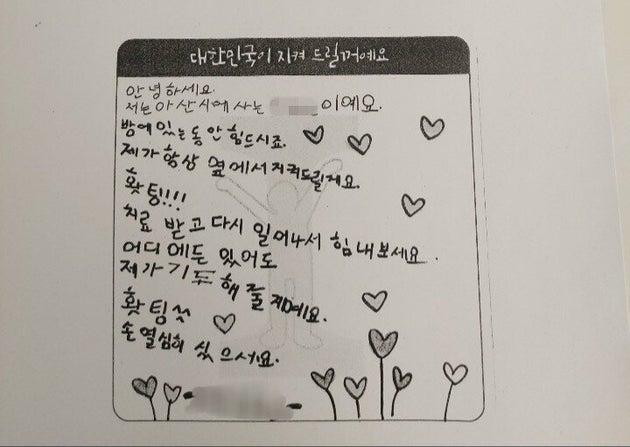 대한민국이 지켜 드릴꺼예요
안녕하세요.
저는 아산시에 사는 이예요.
방에 있는 동안 힘드시죠.
제가 항상 옆에서 지켜드릴게요.
홧팅!!!
치료 받고 다시 일어나서 힘내보세요.
어디에든 있어도
제가 기두해 줄께예요.
홧팅
손 열심히 싰으서요.